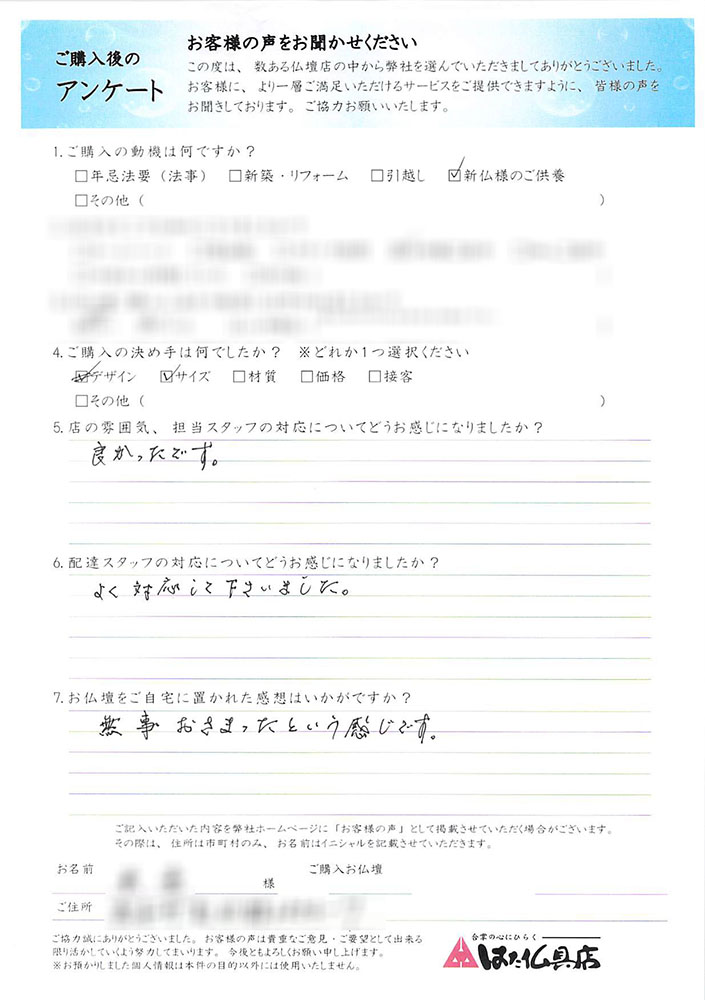 ご購入後の
アンケート
お客様の声をお聞かせください
この度は、数ある仏壇店の中から弊社を選んでいただきましてありがとうございました。
お客様に、より一層ご満足いただけるサービスをご提供できますように、皆様の声を
お聞きしております。ご協力お願いいたします。
1.ご購入の動機は何ですか？
□年忌法要（法事） □新築・リフォーム □引越し ☑新仏様のご供養
□その他（ ）
4.ご購入の決め手は何でしたか？ ※どれか1つ選択ください
☑デザイン ☑サイズ □材質 □価格 □接客
□その他（ ）
5.店の雰囲気、担当スタッフの対応についてどうお感じになりましたか？
良かったです。
6.配達スタッフの対応についてどうお感じになりましたか？
よく対応して下さいました。
7.お仏壇をご自宅に置かれた感想はいかがですか？
無事おさまったという感じです。
ご記入いただいた内容を弊社ホームページに「お客様の声」として掲載させていただく場合がございます。
その際は、住所は市町村のみ、お名前はイニシャルを記載させていただきます。
お名前 様 ご購入お仏壇
ご住所
ご協力誠にありがとうございました。お客様の声は貴重なご意見・ご要望として出来る
限り活かしていくよう努力してまいります。今後ともよろしくお願い申し上げます。
※お預かりしました個人情報は本件の目的以外には使用いたしません。
合掌の心にひらく
はた仏具店